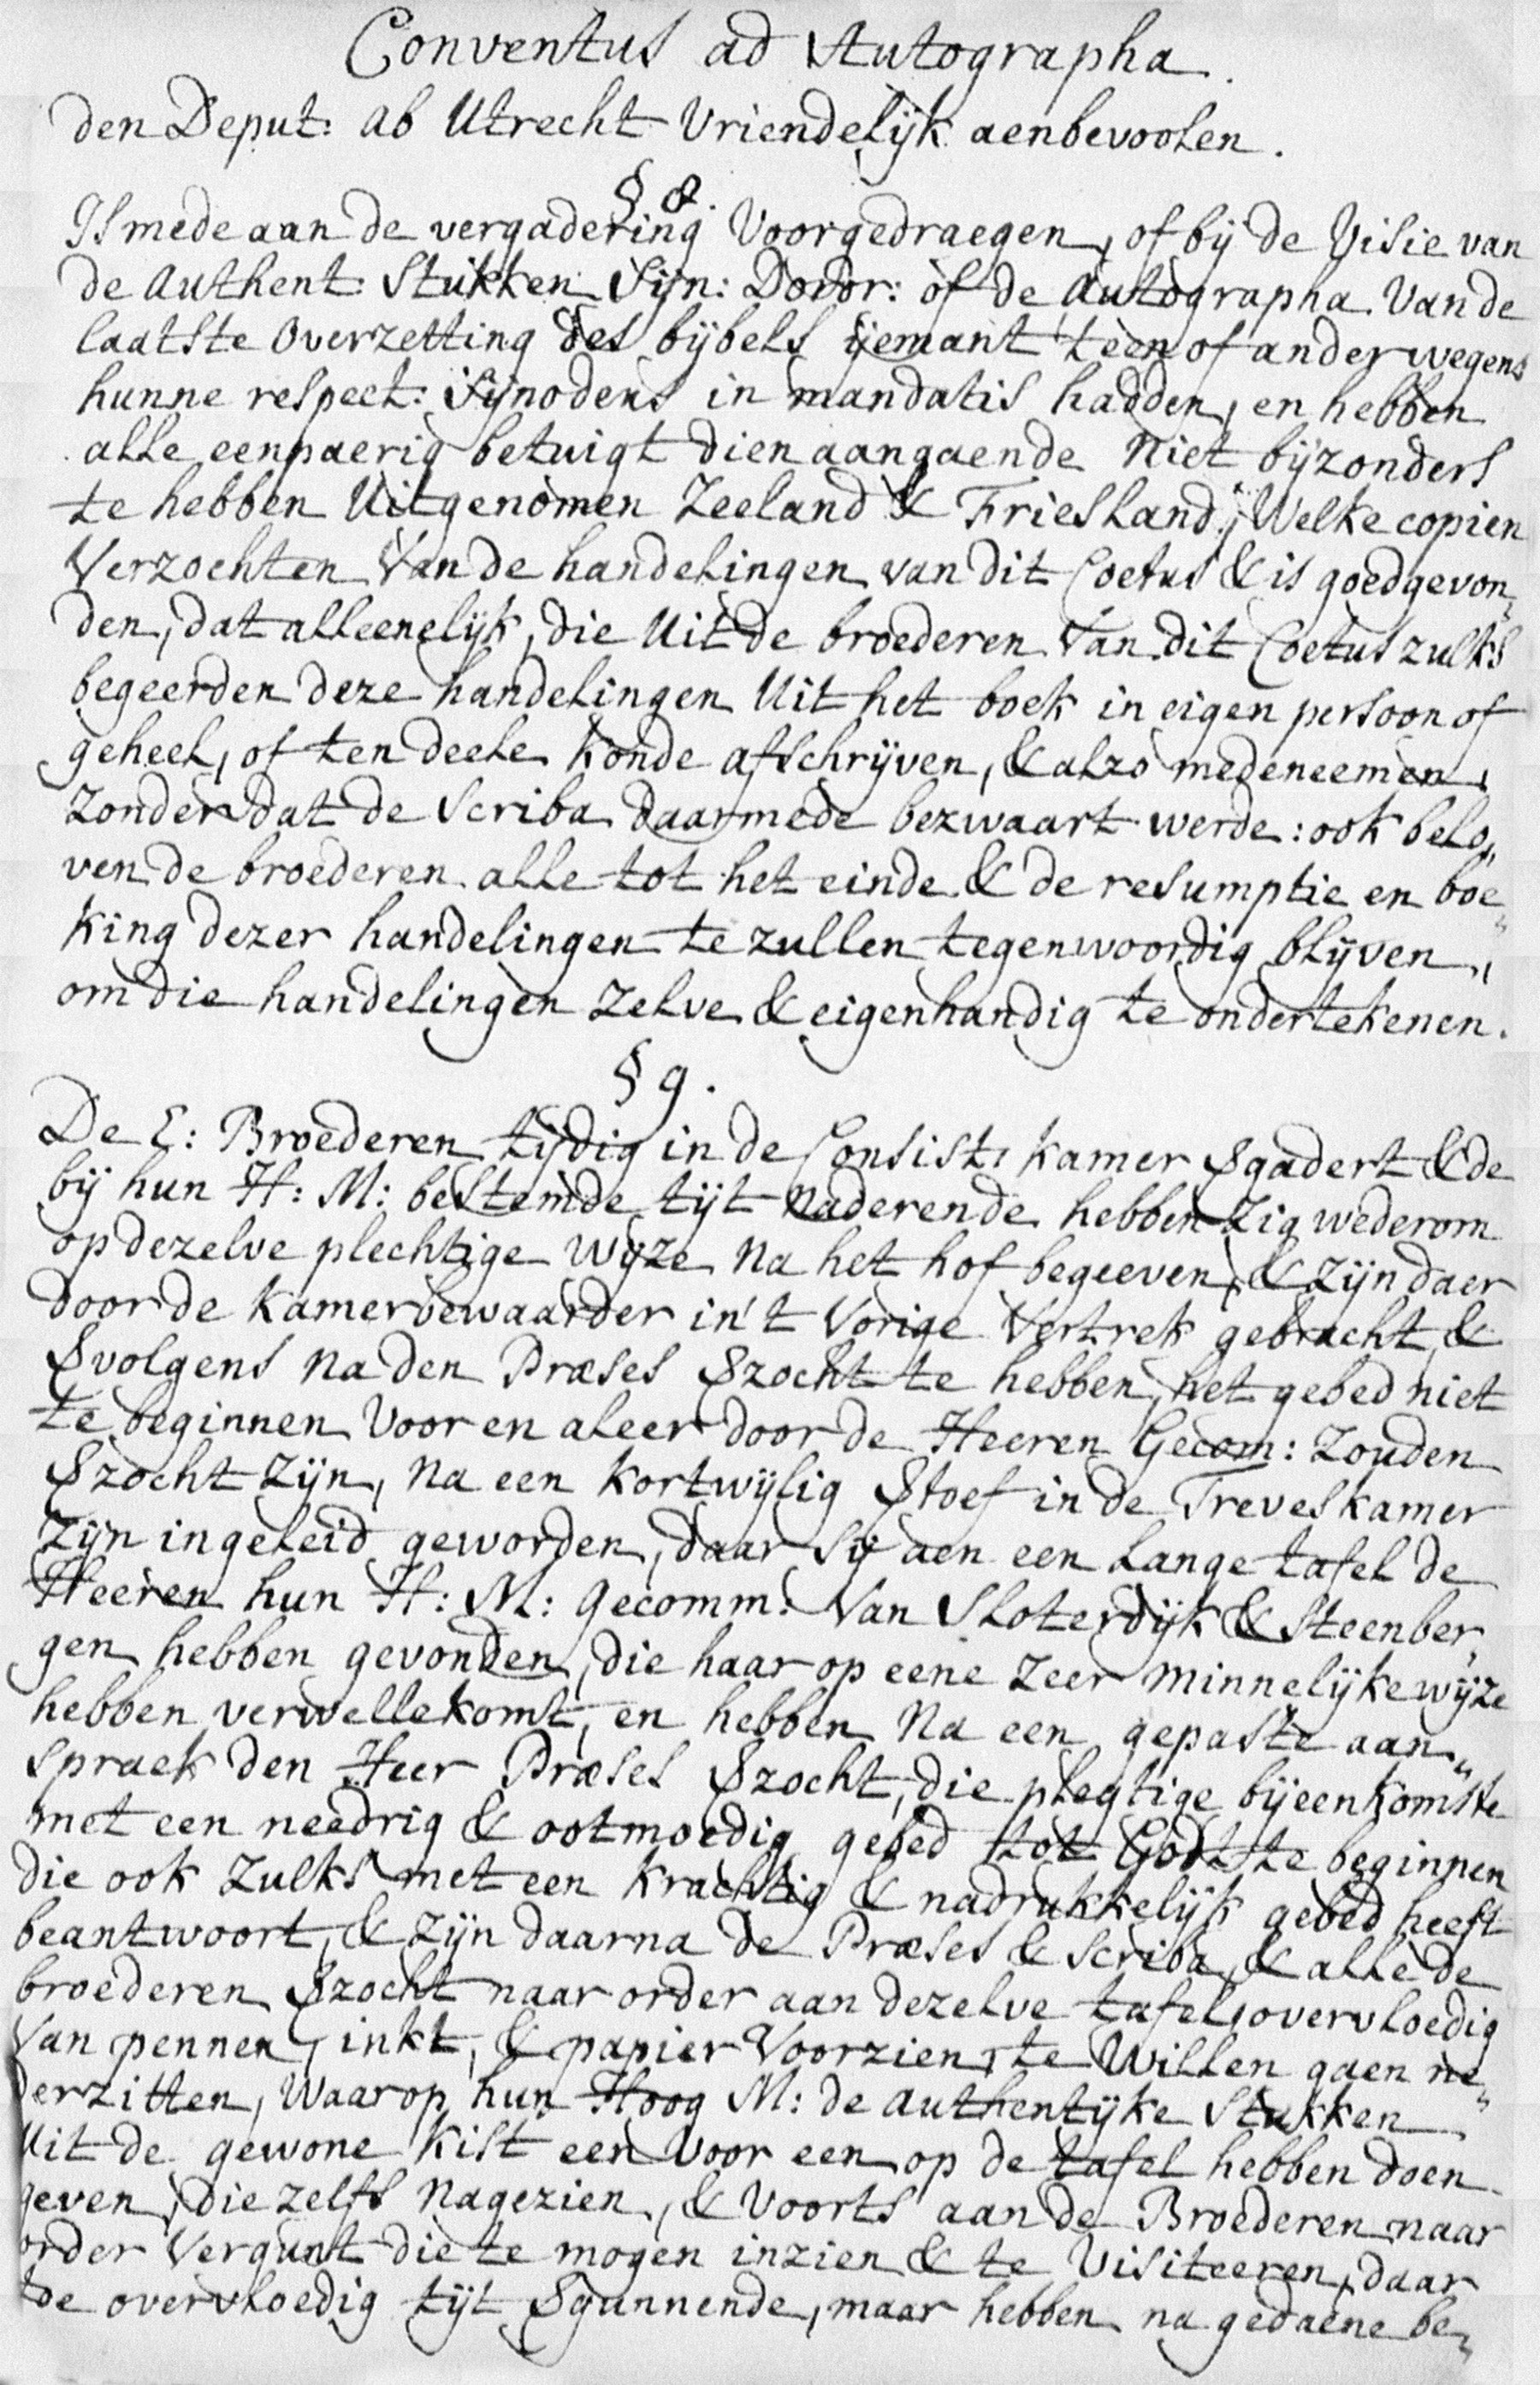 Conventus ad Autographa.
den Deput: ab Utrecht Vriendelijk aenbevoolen.
§ 8.
Is mede aan de vergadering Voorgedraegen, of bij de Visie van
de Authent: Stukken Sijn: Dordr: of de Autographa Van de
laatste Overzetting des bijbels ijemant 't een of ander wegens
hunne respect: Sijnodens in mandatis hadden, en hebben
alle eenpaerig betuigt dien aangaende Niet bijzonders
te hebben Uitgenomen Zeeland & Friesland; Welke copien
Verzochten Van de handelingen van dit Coetus & is goedgevon„
den, dat alleenelijk, die Uit de broederen Van dit Coetus zulks
begeerden deze handelingen Uit het boek in eigen persoon of
geheel, of ten deele konde afschrijven, & alzo medeneemen,
Zonder dat de Scriba daarmede bezwaart werde: ook belo„
ven de broederen alle tot het einde & de resumptie en boe„
king dezer handelingen te zullen tegenwoordig blijven,
om die handelingen Zelve & eigenhandig te ondertekenen.
§ 9.
De E: Broederen tijdig in de Consist: kamer Sgadert & de
bij hun H: M: bestemde tijt Naderende hebben Zig wederom
op dezelve plechtige Wijze Na het hof begeeven, & Zijn daer
door de Kamerbewaarder in 't Vorige Vertrek gebracht, &
Svolgens Na den Præses Szocht te hebben, het gebed niet
te beginnen Voor en aleer door de Heeren Gecom: Zouden
Szocht Zijn, Na een Kortwijlig Stoef in de Treves kamer
Zijn ingeleid geworden, daar Sij aen een Lange tafel de
Heeren hun H: M: Gecomm: Van Sloterdijk & Steenber„
gen hebben gevonden, die haar op eene Zeer Minnelijke wijze
hebben verwellekomt, en hebben Na een gepaste aan„
spraek den Heer Præses Szocht, die plegtige bijeenkomste
met een needrig & ootmoedig gebed tot Godt te beginnen
die ook Zulks met een Krachtig & nadrukkelijk gebed heeft
beantwoort, & Zijn daarna de Præses & Scriba, & alle de
broederen Szocht naar order aan dezelve tafel, overvloedig
Van pennen, inkt, & papier Voorzien, te Willen gaen ne„
derzitten, Waar op hun Hoog M: de Authentijke Stukken
Uit de gewone Kist een Voor een op de tafel hebben doen
geven, die zelfs Nagezien, & Voorts aan de Broederen naar
order Vergunt die te mogen inzien & te Visiteeren, daar
toe overvloedig tijt Sgunnende, maar hebben na gedaene be„